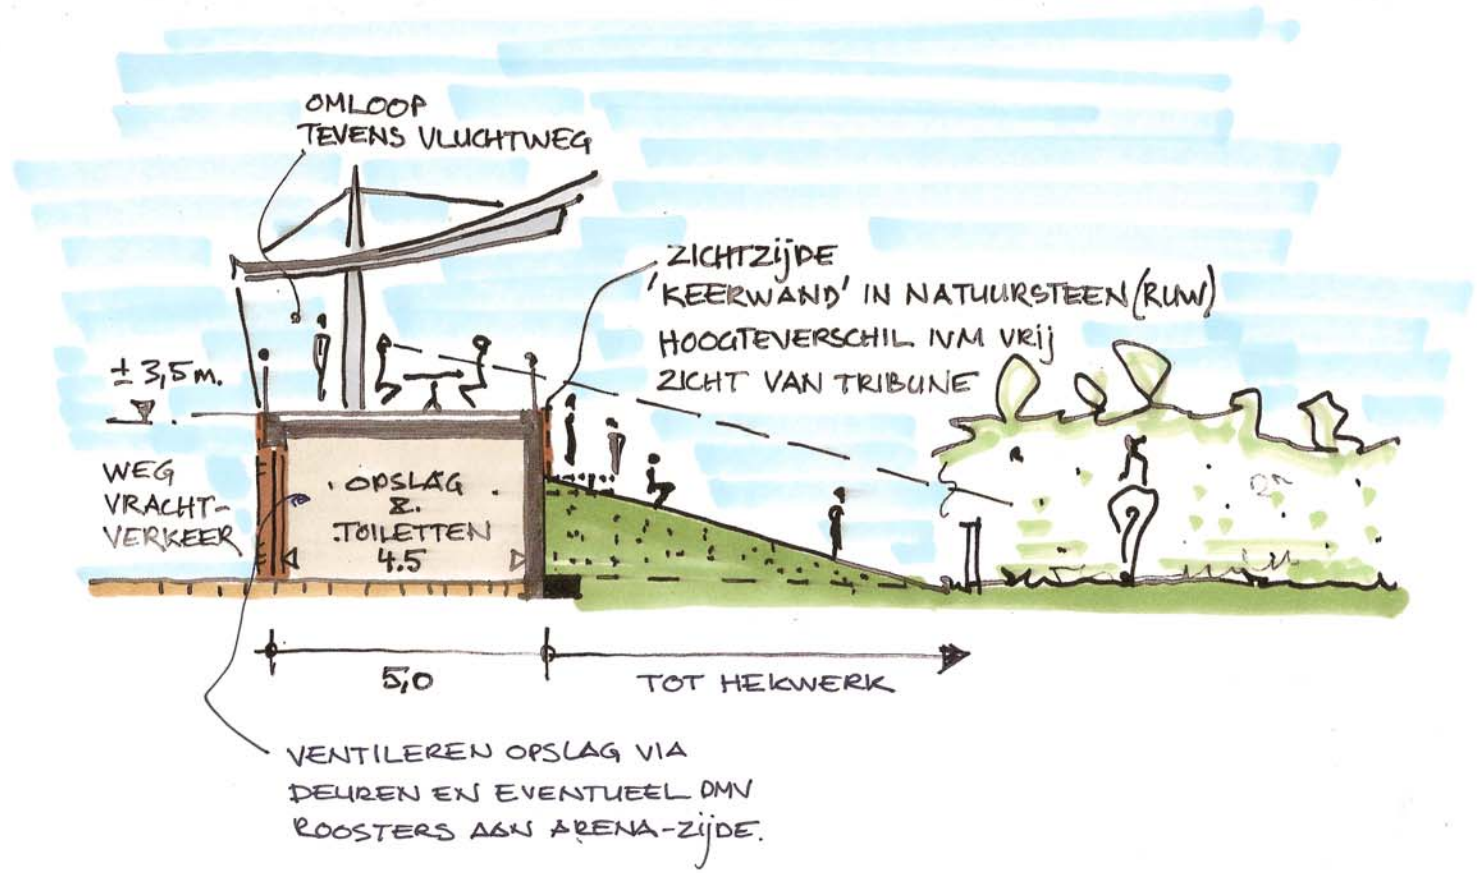 OMLOOP
TEVENS VLUCHTWEG
ZICHTZIJDE
'KEERWAND' IN NATUURSTEEN (RUW)
HOOGTEVERSCHIL IVM VRIJ
ZICHT VAN TRIBUNE
± 3,5 m.
WEG
VRACHT-
VERKEER
OPSLAG
&
TOILETTEN
4.5
5,0
TOT HEKWERK
VENTILEREN OPSLAG VIA
DEUREN EN EVENTUEEL DMV
ROOSTERS AAN ARENA-ZIJDE.